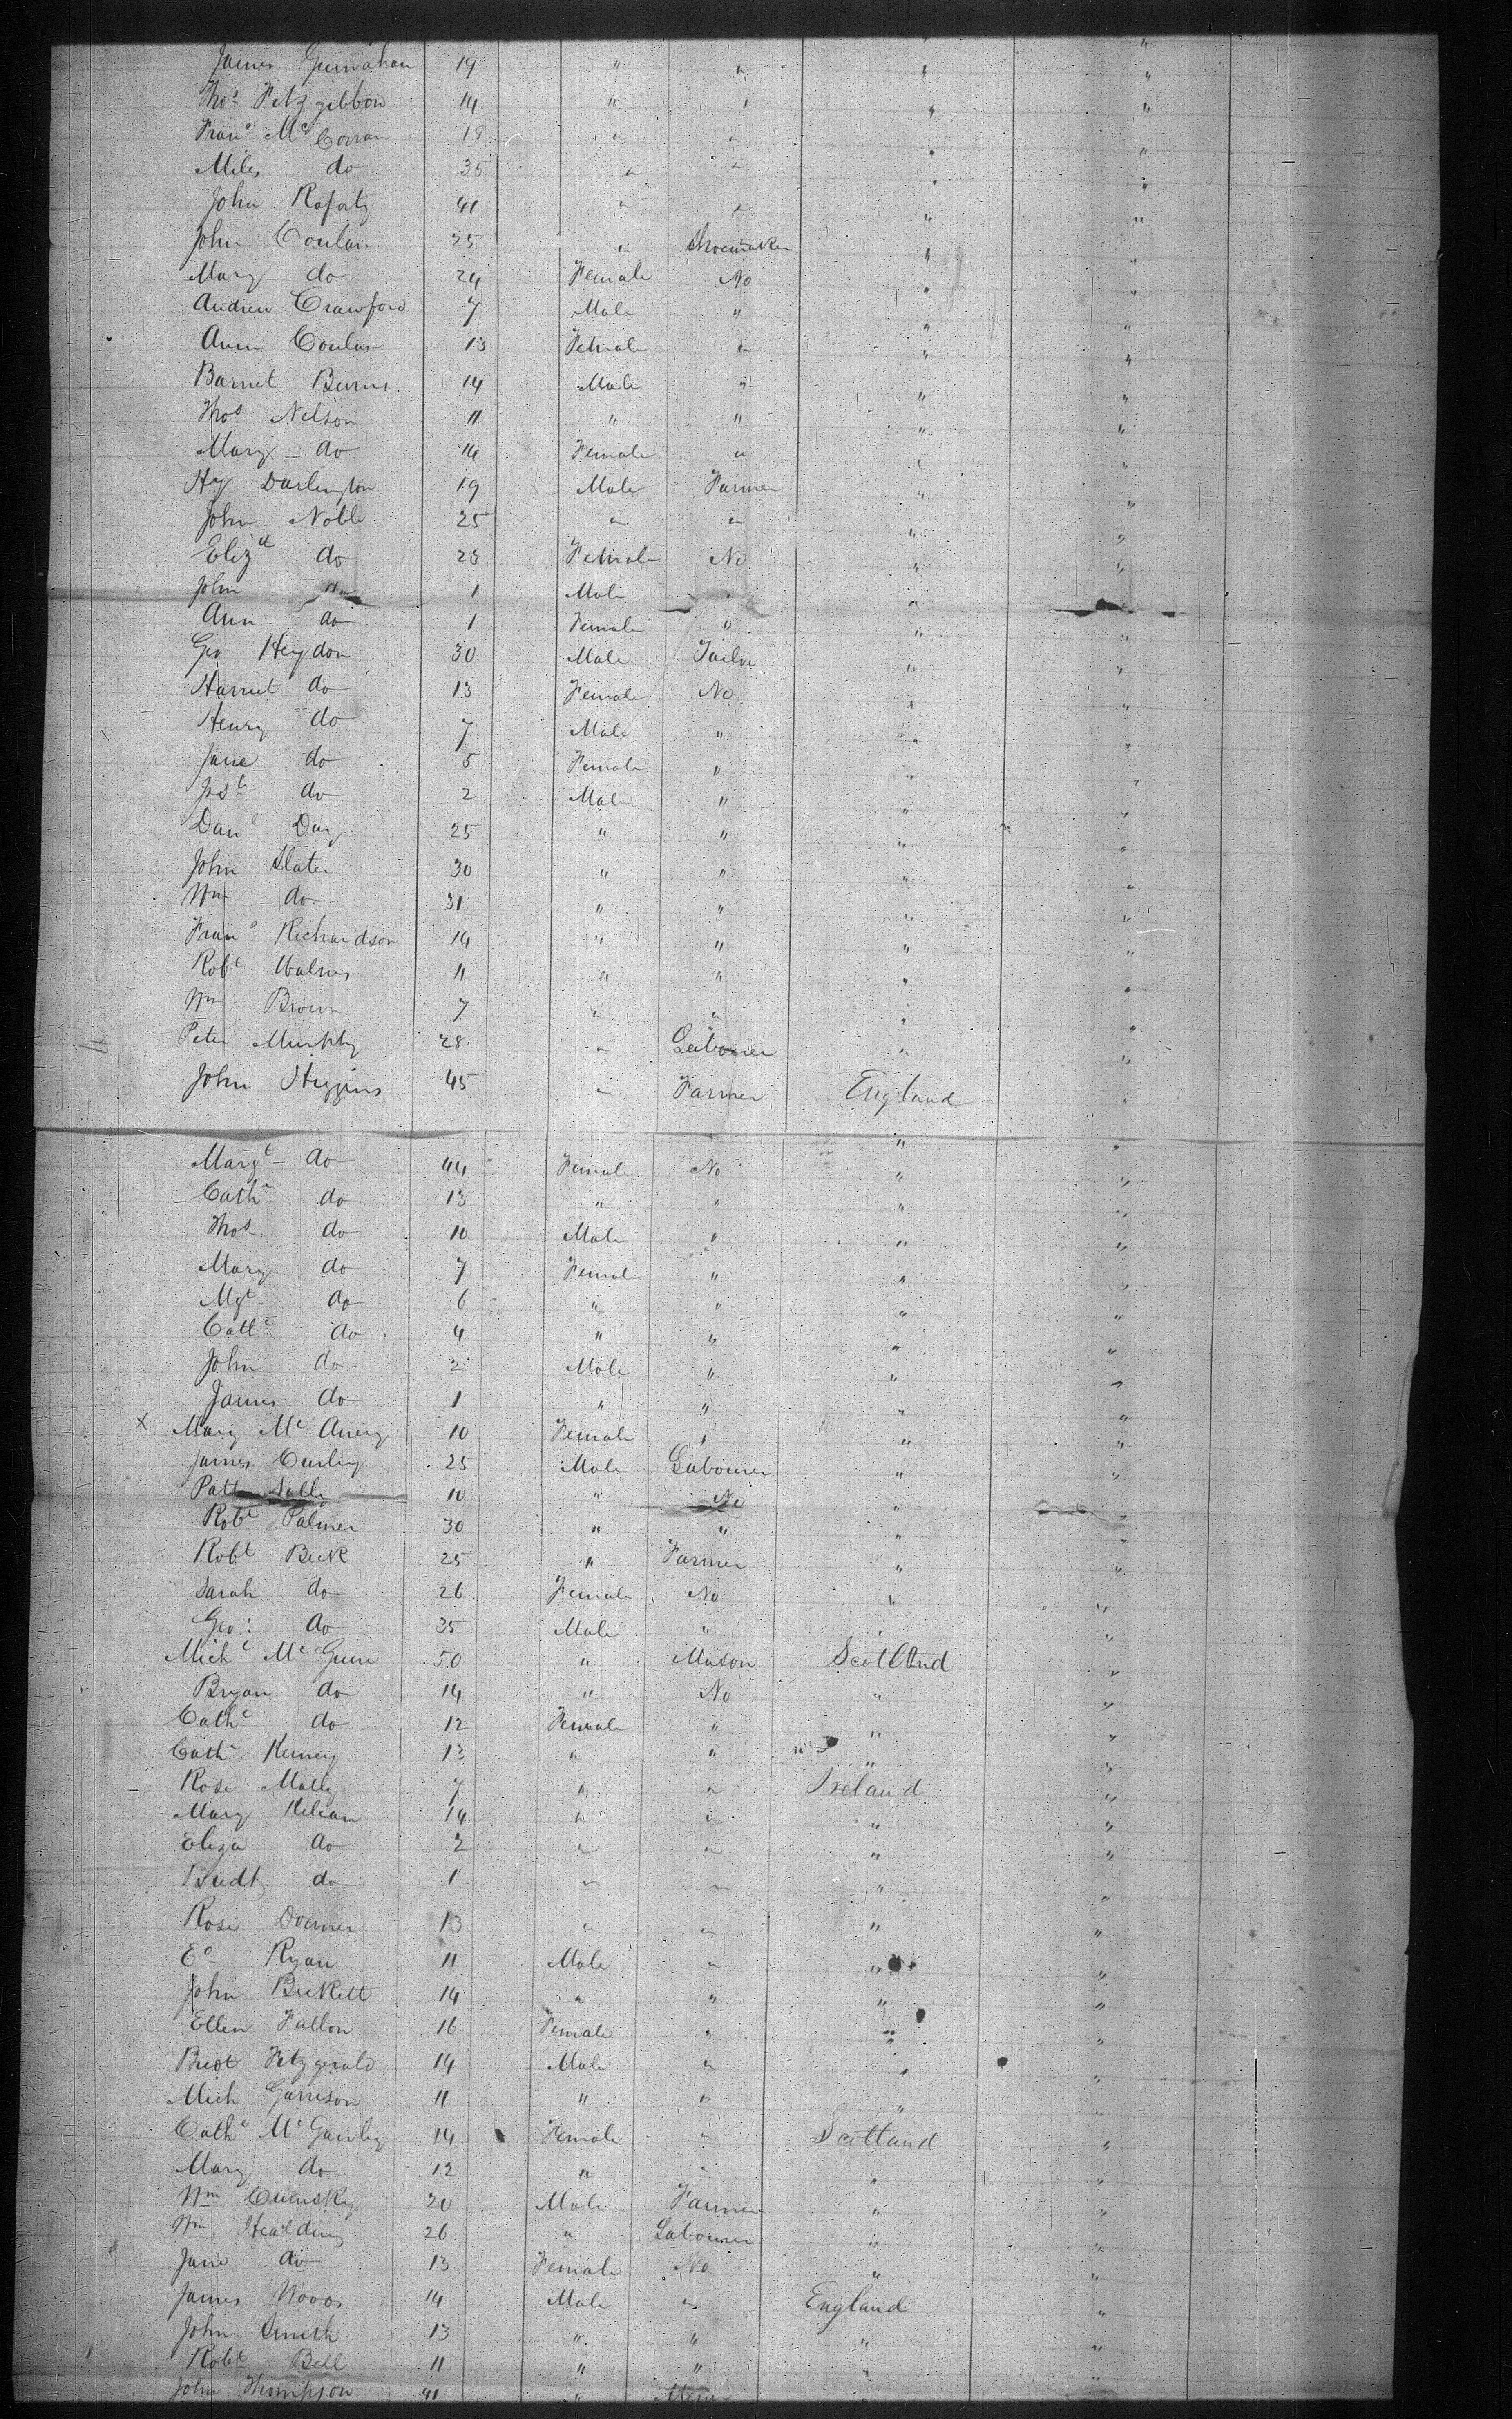 James Gurnahan 19 " " " "
Thos Fitzgibbon 14 " " " "
Frans McCorran 18 " " " "
Miles do 35 " " " "
John Raferty 41 " " " "
John Conlan 25 " Shoemaker " "
Mary do 24 Female No " "
Andrew Crawford 7 Male " " "
Ann Conlan 13 Female " " "
Barnet Burns 14 Male " " "
Thos Nelson 11 " " " "
Mary do 14 Female " " "
Hy Darlington 19 Male Farmer " "
John Noble 25 " " " "
Elizth do 23 Female No " "
John 1 Male " " "
Ann do 1 Female " " "
Geo Heydon 30 Male Tailor " "
Harriet do 13 Female No " "
Henry do 7 Male " " "
Jane do 5 Female " " "
do 2 Male " " "
Danl Day 25 " " " "
John Slater 30 " " " "
Wm do 31 " " " "
Frans Richardson 14 " " " "
Robt 11 " " " "
Wm Brown 7 " " " "
Peter Murphy 28 " Labourer " "
John Higgins 45 " Farmer England "
Margt do 44 Female No " "
Cathe do 13 " " " "
Thos do 10 Male " " "
Mary do 7 Female " " "
Mgt do 6 " " " "
Cathe do 4 " " " "
John do 2 Male " " "
James do 1 " " " "
x Mary Mc 10 Female " " "
James Curley 25 Male Labourer " "
Patt 10 " No " "
Robt Palmer 30 " " " "
Robt Beck 25 " Farmer " "
Sarah do 26 Female No " "
Geo: do 35 Male " " "
Michl McGuire 50 " Mason Scotland "
Bryan do 14 " No " "
Cathe do 12 Female " " "
Cathe Kenney 13 " " " "
Rose Mally 7 " " Ireland "
Mary Kelian 14 " " " "
Eliza do 2 " " " "
Bridt do 1 " " " "
Rose Dorner 13 " " " "
Ed Ryan 11 Male " " "
John Beckett 14 " " " "
Ellen Fallon 16 Female " " "
Fitzgerald 14 Male " " "
Mich Garrison 11 " " " "
Cathe McGauley 14 Female " Scotland "
Mary do 12 " " " "
Wm 20 Male Farmer " "
Wm Healding 26 " Labourer " "
Jane do 13 Female No " "
James Woods 14 Male " England "
John Smith 13 " " " "
Robt Bell 11 " " " "
John Thompson 41 "